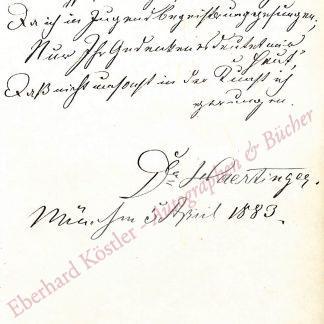 Da ich in Jugendbegeisterung gesungen,
Nur Ihr Gedenken es deutet mir
u heut,
Daß nicht umsonst in der Kunst ich
gerungen.
Dr Schaertinger.
München 5 April 1883.
Eberhard Köstler - Autographen & Bücher